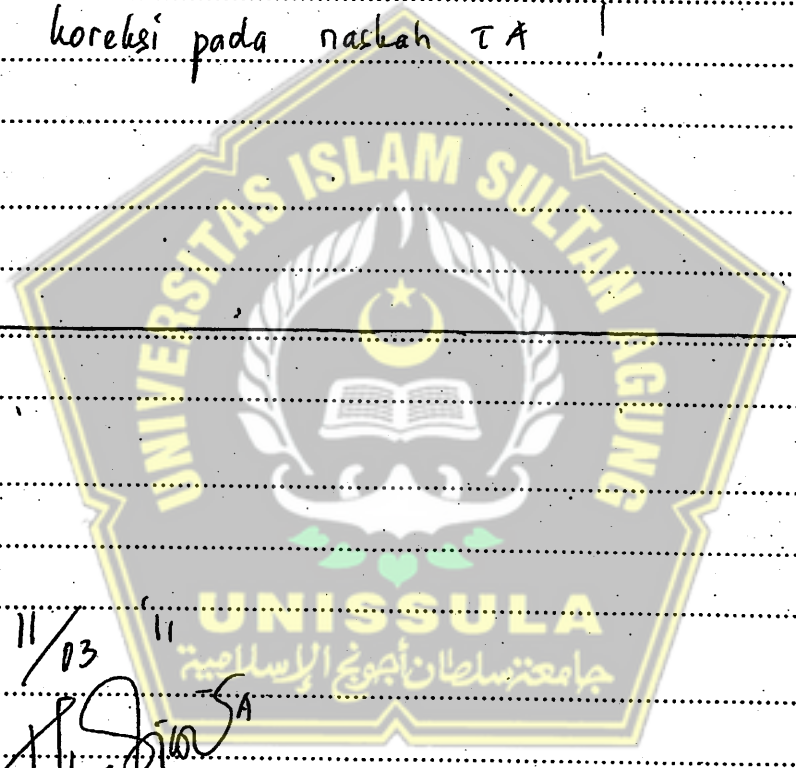 koreksi pada naskah TA !
UNIVERSITAS ISLAM SULTAN AGUNG
11/03 '11
UNISSULA
جامعة سلطان أجونج الإسلامية